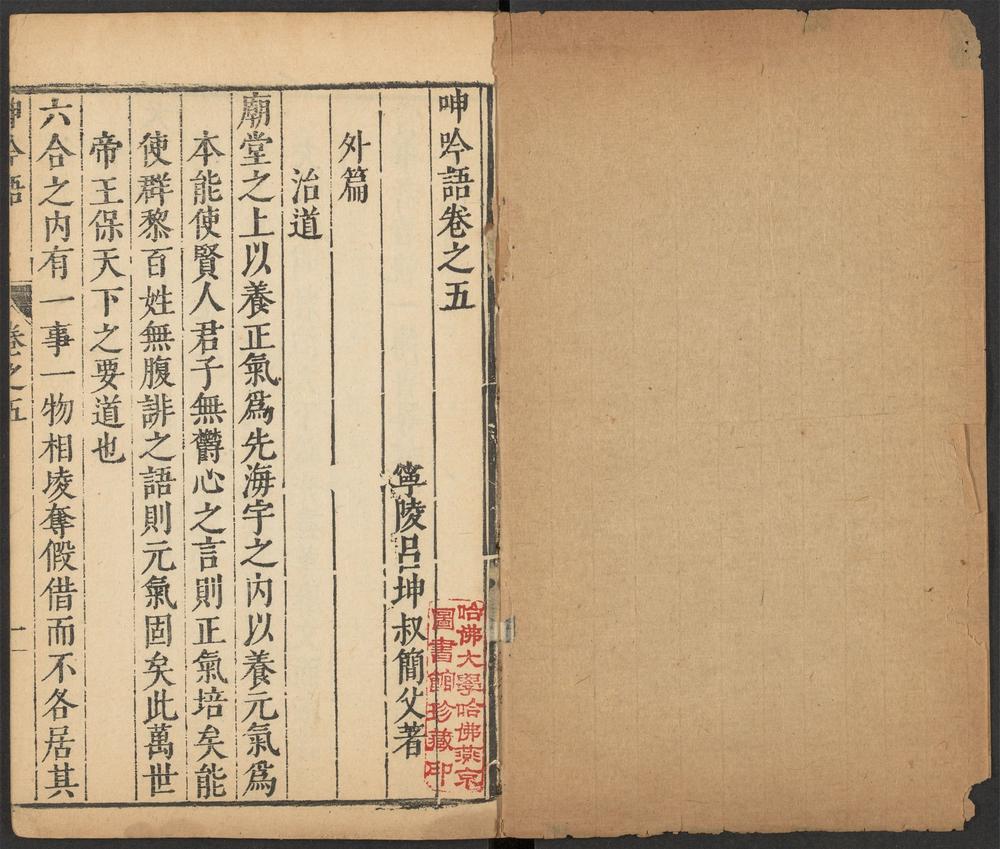 呻吟語卷之五
寧陵呂坤叔簡父著
外篇
治道
廟堂之上以養正氣爲先海宇之内以養元氣爲
本能使賢人君子無鬱心之言則正氣培矣能
使群黎百姓無腹誹之語則元氣固矣此萬世
帝王保天下之要道也
六合之内有一事一物相凌奪假借而不各居其
呻吟語 卷之五 一
哈佛大學哈佛燕京
圖書館珍藏印